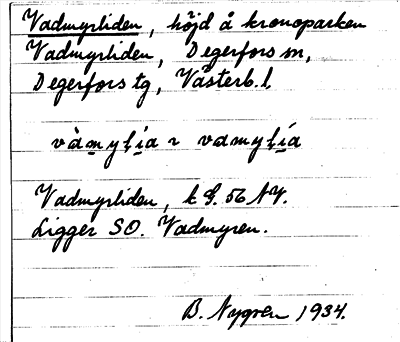 Vadmyrliden, höjd å kronoparken
Vadmyrliden, Degerfors sn,
Degerfors tg, Västerb. l.
vàmyļia ~ vamyļía
Vadmyrliden, k. bl. 56 NV.
Ligger SO. Vadmyren.
B. Nygren 1934.